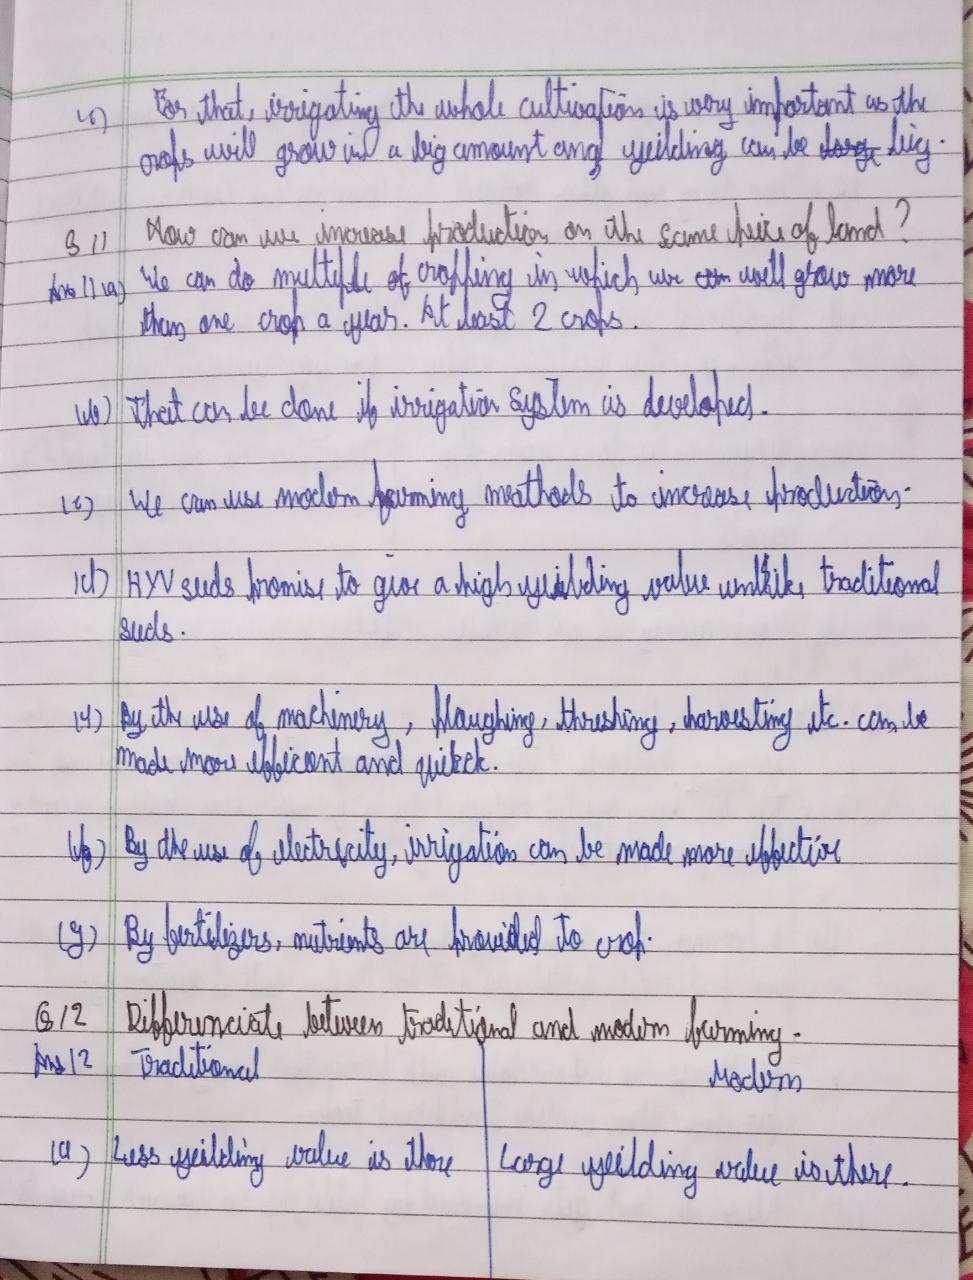 (c) For that, irrigating the whole cultivation is very important as the
crops will grow in a big amount and yeilding can be large big.
Q 11 How can we increase production on the same peice of land?
Ans 11 (a) We can do multiple of cropping in which we can will grow more
than one crop a year. At least 2 crops.
(b) That can be done if irrigation system is developed.
(c) We can use modern farming meathods to increase production.
(d) HYV seeds promise to give a high yeilding value unlike traditional
seeds.
By the use of machinery, ploughing, threshing, harvesting etc. can be
made more efficent and quick.
By the use of electricity, irrigation can be made more effective
(g) By fertilizers, nutrients are provided to crop.
Q 12 Differenciate between traditional and modern farming.
Ans 12 Traditional Modern
(a) Less yeilding value is there Large yeilding value is there.